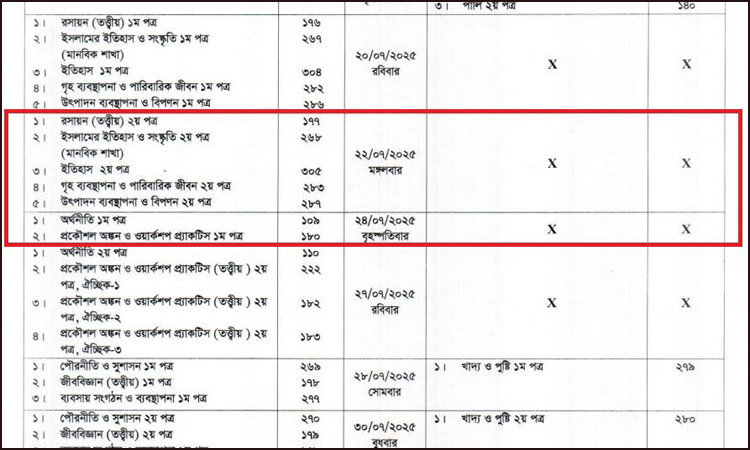 ৩। পালি ২য় পত্র ১৪০
১। রসায়ন (তত্ত্বীয়) ১ম পত্র ১৭৬
২। ইসলামের ইতিহাস ও সংস্কৃতি ১ম পত্র ২৬৭
(মানবিক শাখা)
২০/০৭/২০২৫
রবিবার
X X
৩। ইতিহাস ১ম পত্র ৩০৪
৪। গৃহ ব্যবস্থাপনা ও পারিবারিক জীবন ১ম পত্র ২৮২
৫। উৎপাদন ব্যবস্থাপনা ও বিপণন ১ম পত্র ২৮৬
১। রসায়ন (তত্ত্বীয়) ২য় পত্র ১৭৭
২। ইসলামের ইতিহাস ও সংস্কৃতি ২য় পত্র ২৬৮
(মানবিক শাখা)
২২/০৭/২০২৫
মঙ্গলবার
X X
৩। ইতিহাস ২য় পত্র ৩০৫
৪। গৃহ ব্যবস্থাপনা ও পারিবারিক জীবন ২য় পত্র ২৮৩
৫। উৎপাদন ব্যবস্থাপনা ও বিপণন ২য় পত্র ২৮৭
১। অর্থনীতি ১ম পত্র ১০৯ ২৪/০৭/২০২৫
২। প্রকৌশল অঙ্কন ও ওয়ার্কশপ প্র্যাকটিস ১ম পত্র ১৮০ বৃহস্পতিবার
X X
১। অর্থনীতি ২য় পত্র ১১০
২। প্রকৌশল অঙ্কন ও ওয়ার্কশপ প্র্যাকটিস (তত্ত্বীয় ) ২য় ২২২
পত্র, ঐচ্ছিক-১
২৭/০৭/২০২৫
রবিবার
X X
৩। প্রকৌশল অঙ্কন ও ওয়ার্কশপ প্র্যাকটিস (তত্ত্বীয় ) ২য় ১৮২
পত্র, ঐচ্ছিক-২
৪। প্রকৌশল অঙ্কন ও ওয়ার্কশপ প্র্যাকটিস (তত্ত্বীয় ) ২য় ১৮৩
পত্র, ঐচ্ছিক-৩
১। পৌরনীতি ও সুশাসন ১ম পত্র ২৬৯ ১। খাদ্য ও পুষ্টি ১ম পত্র ২৭৯
২। জীববিজ্ঞান (তত্ত্বীয়) ১ম পত্র ১৭৮ ২৮/০৭/২০২৫
৩। ব্যবসায় সংগঠন ও ব্যবস্থাপনা ১ম পত্র ২৭৭ সোমবার
১। পৌরনীতি ও সুশাসন ২য় পত্র ২৭০ ১। খাদ্য ও পুষ্টি ২য় পত্র ২৮০
২। জীববিজ্ঞান (তত্ত্বীয়) ২য় পত্র ১৭৯ ৩০/০৭/২০২৫
বুধবার